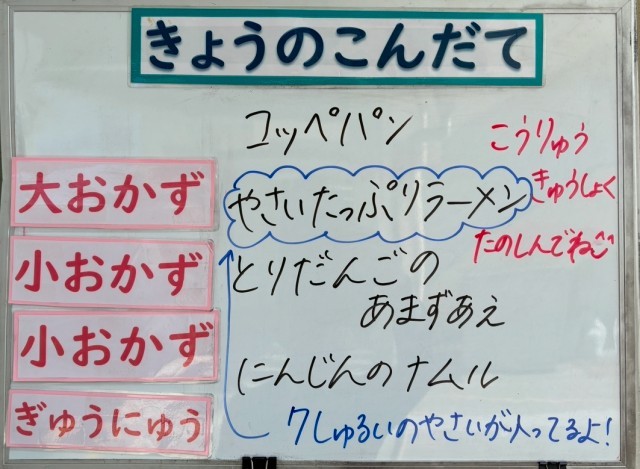 きょうのこんだて
コッペパン
こうりゅう
きゅうしょく
たのしんでね
大おかず
やさいたっぷりラーメン
小おかず
とりだんごの
あまずあえ
小おかず
にんじんのナムル
ぎゅうにゅう
7しゅるいのやさいが入ってるよ!